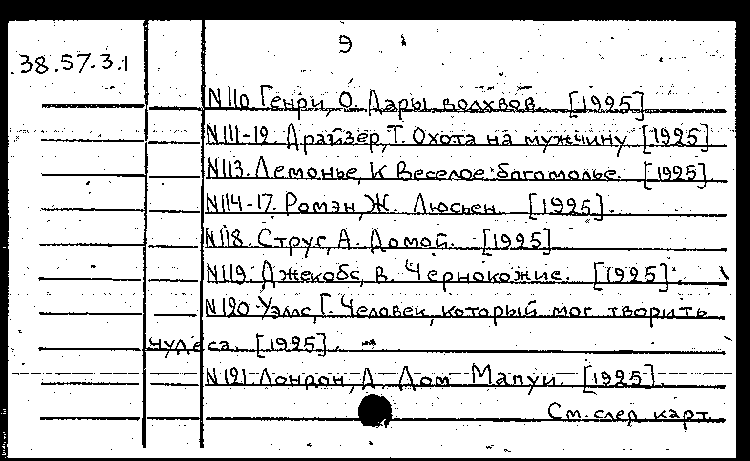 9
38.57.3.1
N110. Генри, О. Дары волхвов. [1925]
N111-12. Драйзер, Т. Охота на мужчину [1925]
N113. Лемонье, К Веселое богомолье. [1925].
N114-17. Ромэн, Ж. Люсьен. [1925].
N118. Струг, А. Домой. [1925]
N119. Джекобс, В. Чернокожие. [1925].
N120. Уэллс, Г. Человек, который мог творить
чудеса. [1925].
N121. Лондон, Д. Дом Мапуи. [1925].
См. след карт.